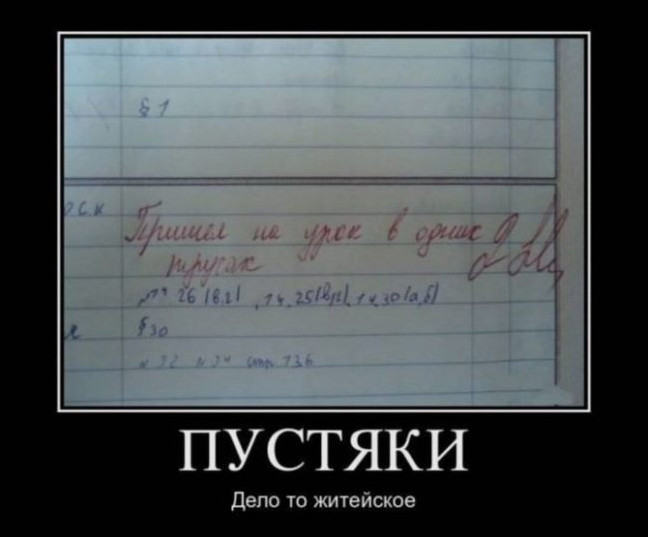 § 1
Пришел на урок в одних
трусах 2
№14 26 (в.г) , 14.25(в,г), 14.30(а,б)
§30
№ 32 № 34 стр. 136
ПУСТЯКИ
Дело то житейское